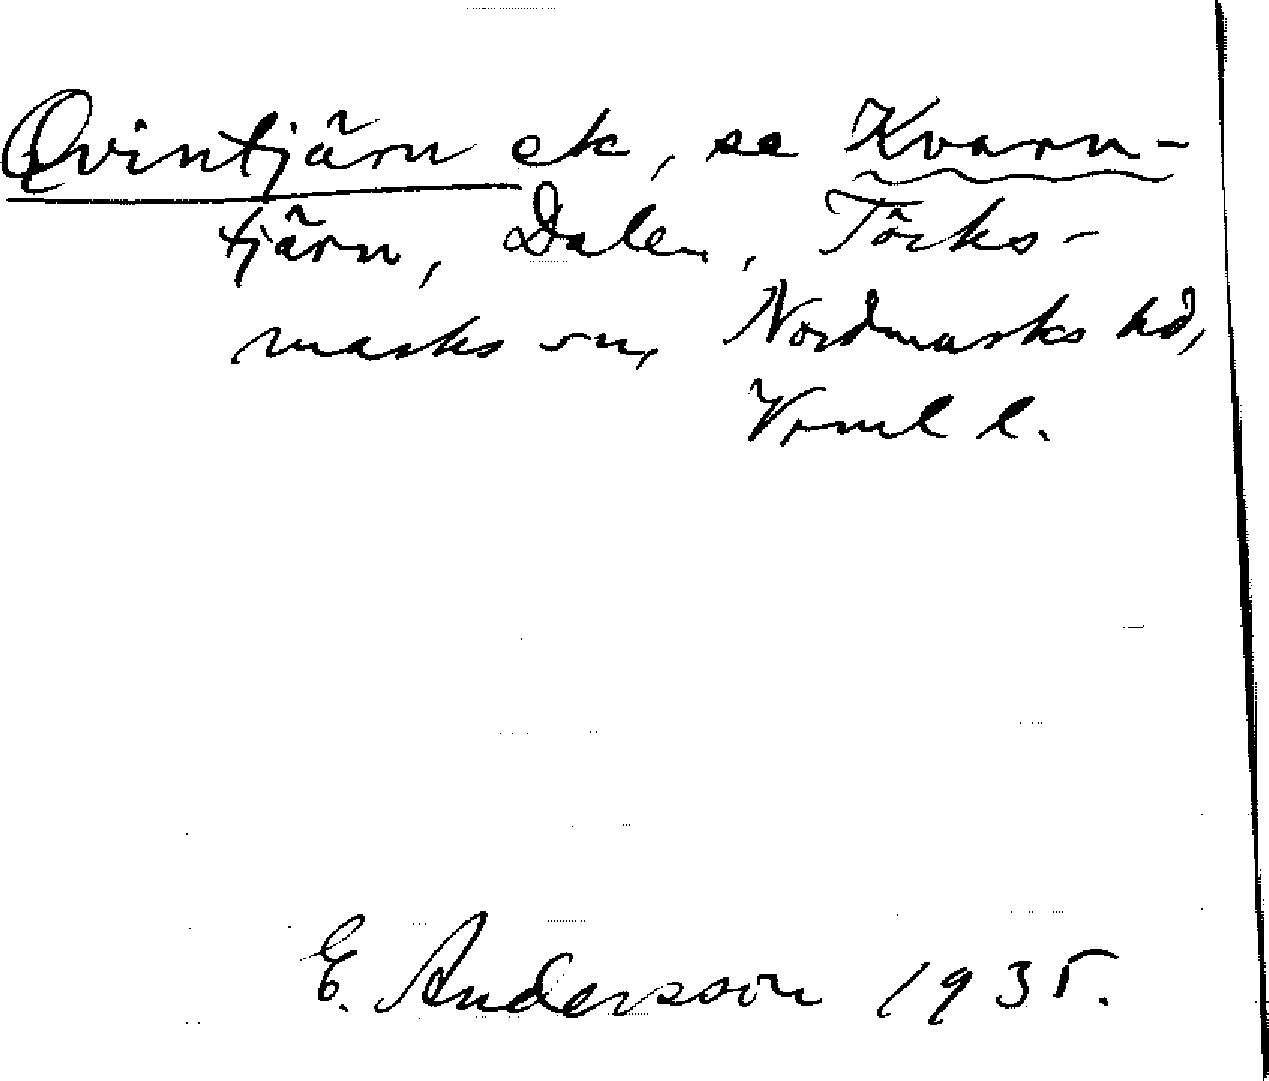 Qvintjärn ek, se Kvarn-
tjärn, Dalen, Töcks-
marks sn, Nordmarks hd,
Vrml l.
E. Andersson 1935.